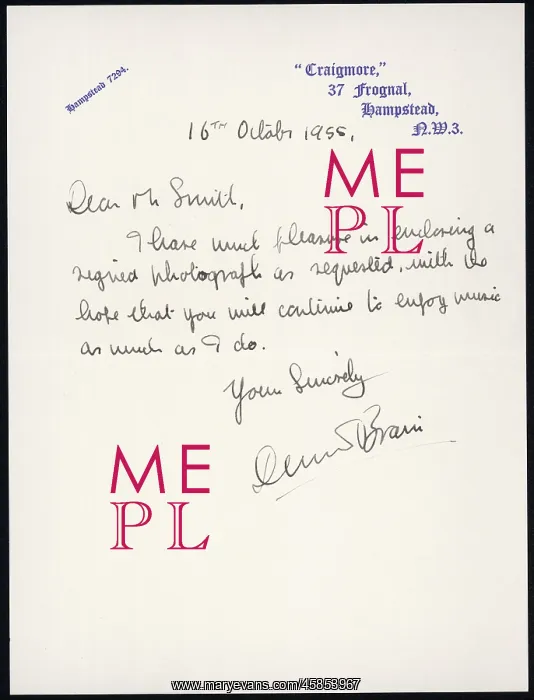 Hampstead 7204.
"Craigmore,"
37 Frognal,
Hampstead,
N.W.3.
16TH October 1955.
Dear Mr Smith,
I have much pleasure in enclosing a
signed photograph as requested, with the
hope that you will continue to enjoy music
as much as I do.
Yours Sincerely
Dennis Brain
ME
PL
ME
PL
www.maryevans.com/45858967